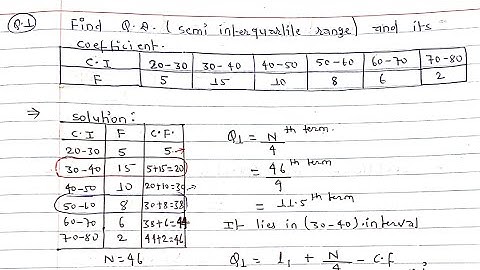 Q.1 Find Q.D. (semi interquartile range) and its
coefficient.
C.I 20-30 30-40 40-50 50-60 60-70 70-80
F 5 15 10 8 6 2
⇒ solution:
C.I F C.F.
20-30 5 5
30-40 15 5+15=20
40-50 10 20+10=30
50-60 8 30+8=38
60-70 6 38+6=44
70-80 2 44+2=46
N=46
Q1 = N/4 th term.
= 46/4 th term
= 11.5th term
It lies in (30-40).interval
Q1 = l1 + N/4 - C.f